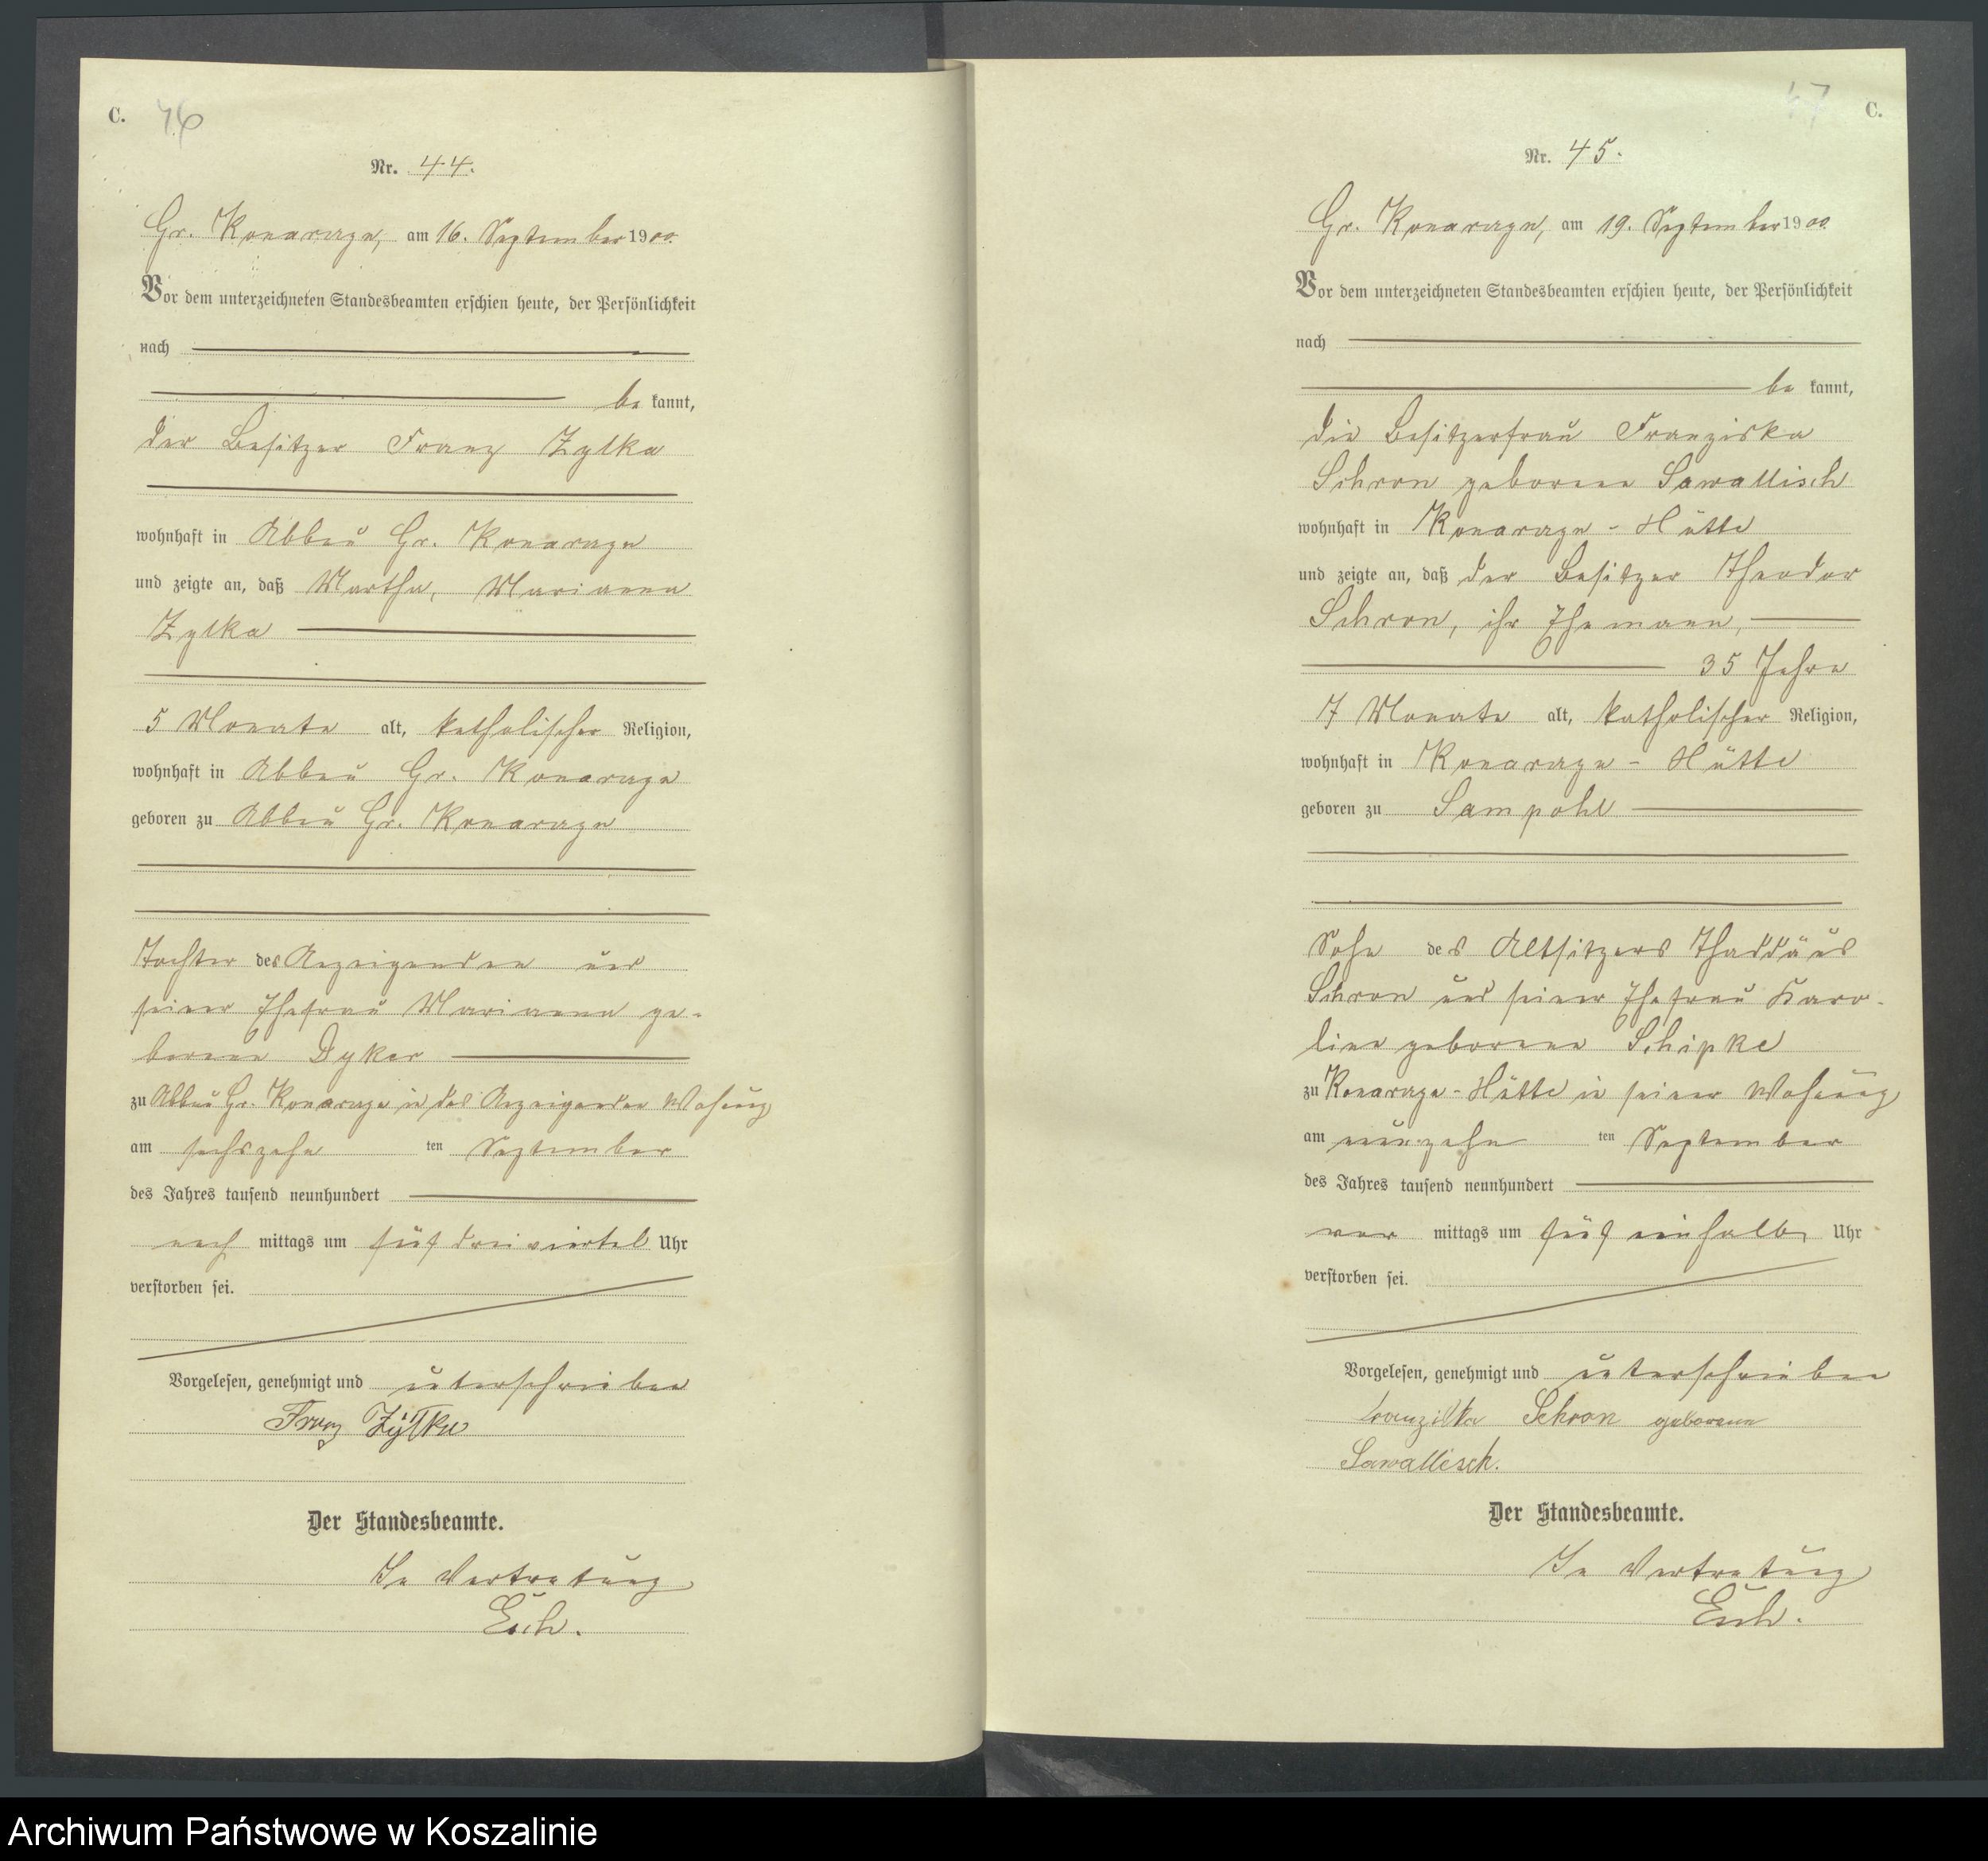 C. 46
Nr. 44.
Gr. Konarczyn, am 16. September 1900.
Vor dem unterzeichneten Standesbeamten erschien heute, der Persönlichkeit
nach
be kannt,
der Besitzer Franz Zytka
wohnhaft in Abbau Gr. Konarczyn
und zeigte an, daß Martha, Marianna
Zytka
5 Monate alt, katholischer Religion,
wohnhaft in Abbau Gr. Konarczyn
geboren zu Abbau Gr. Konarczyn
Tochter des Anzeigenden und
seiner Ehefrau Marianna ge-
borene Dyker
zu Abbau Gr. Konarczyn in des Anzeigenden Wohnung
am sechszehn ten September
des Jahres tausend neunhundert
nach mittags um fünf dreiviertel Uhr
verstorben sei.
Vorgelesen, genehmigt und unterschrieben
Franz
Der Standesbeamte.
In Vertretung
Esch.
47 C.
Nr. 45.
Gr. Konarczyn, am 19. September 1900.
Vor dem unterzeichneten Standesbeamten erschien heute, der Persönlichkeit
nach
be kannt,
die Besitzerfrau Franziska
Schron geborene Sawallisch
wohnhaft in Konarczyn-Hütte
und zeigte an, daß der Besitzer Theodor
Schron, ihr Ehemann,
35 Jahre
7 Monate alt, katholischer Religion,
wohnhaft in Konarczyn-Hütte
geboren zu Sampohl
Sohn des Altsitzers Thaddäus
Schron und seiner Ehefrau Karo-
line geborene Schipke
zu Konarczyn-Hütte in seiner Wohnung
am neunzehn ten September
des Jahres tausend neunhundert
vor mittags um fünf einhalb Uhr
verstorben sei.
Vorgelesen, genehmigt und unterschrieben
Franziska Schron geborene
Sawallisch.
Der Standesbeamte.
In Vertretung
Esch.
Archiwum Państwowe w Koszalinie